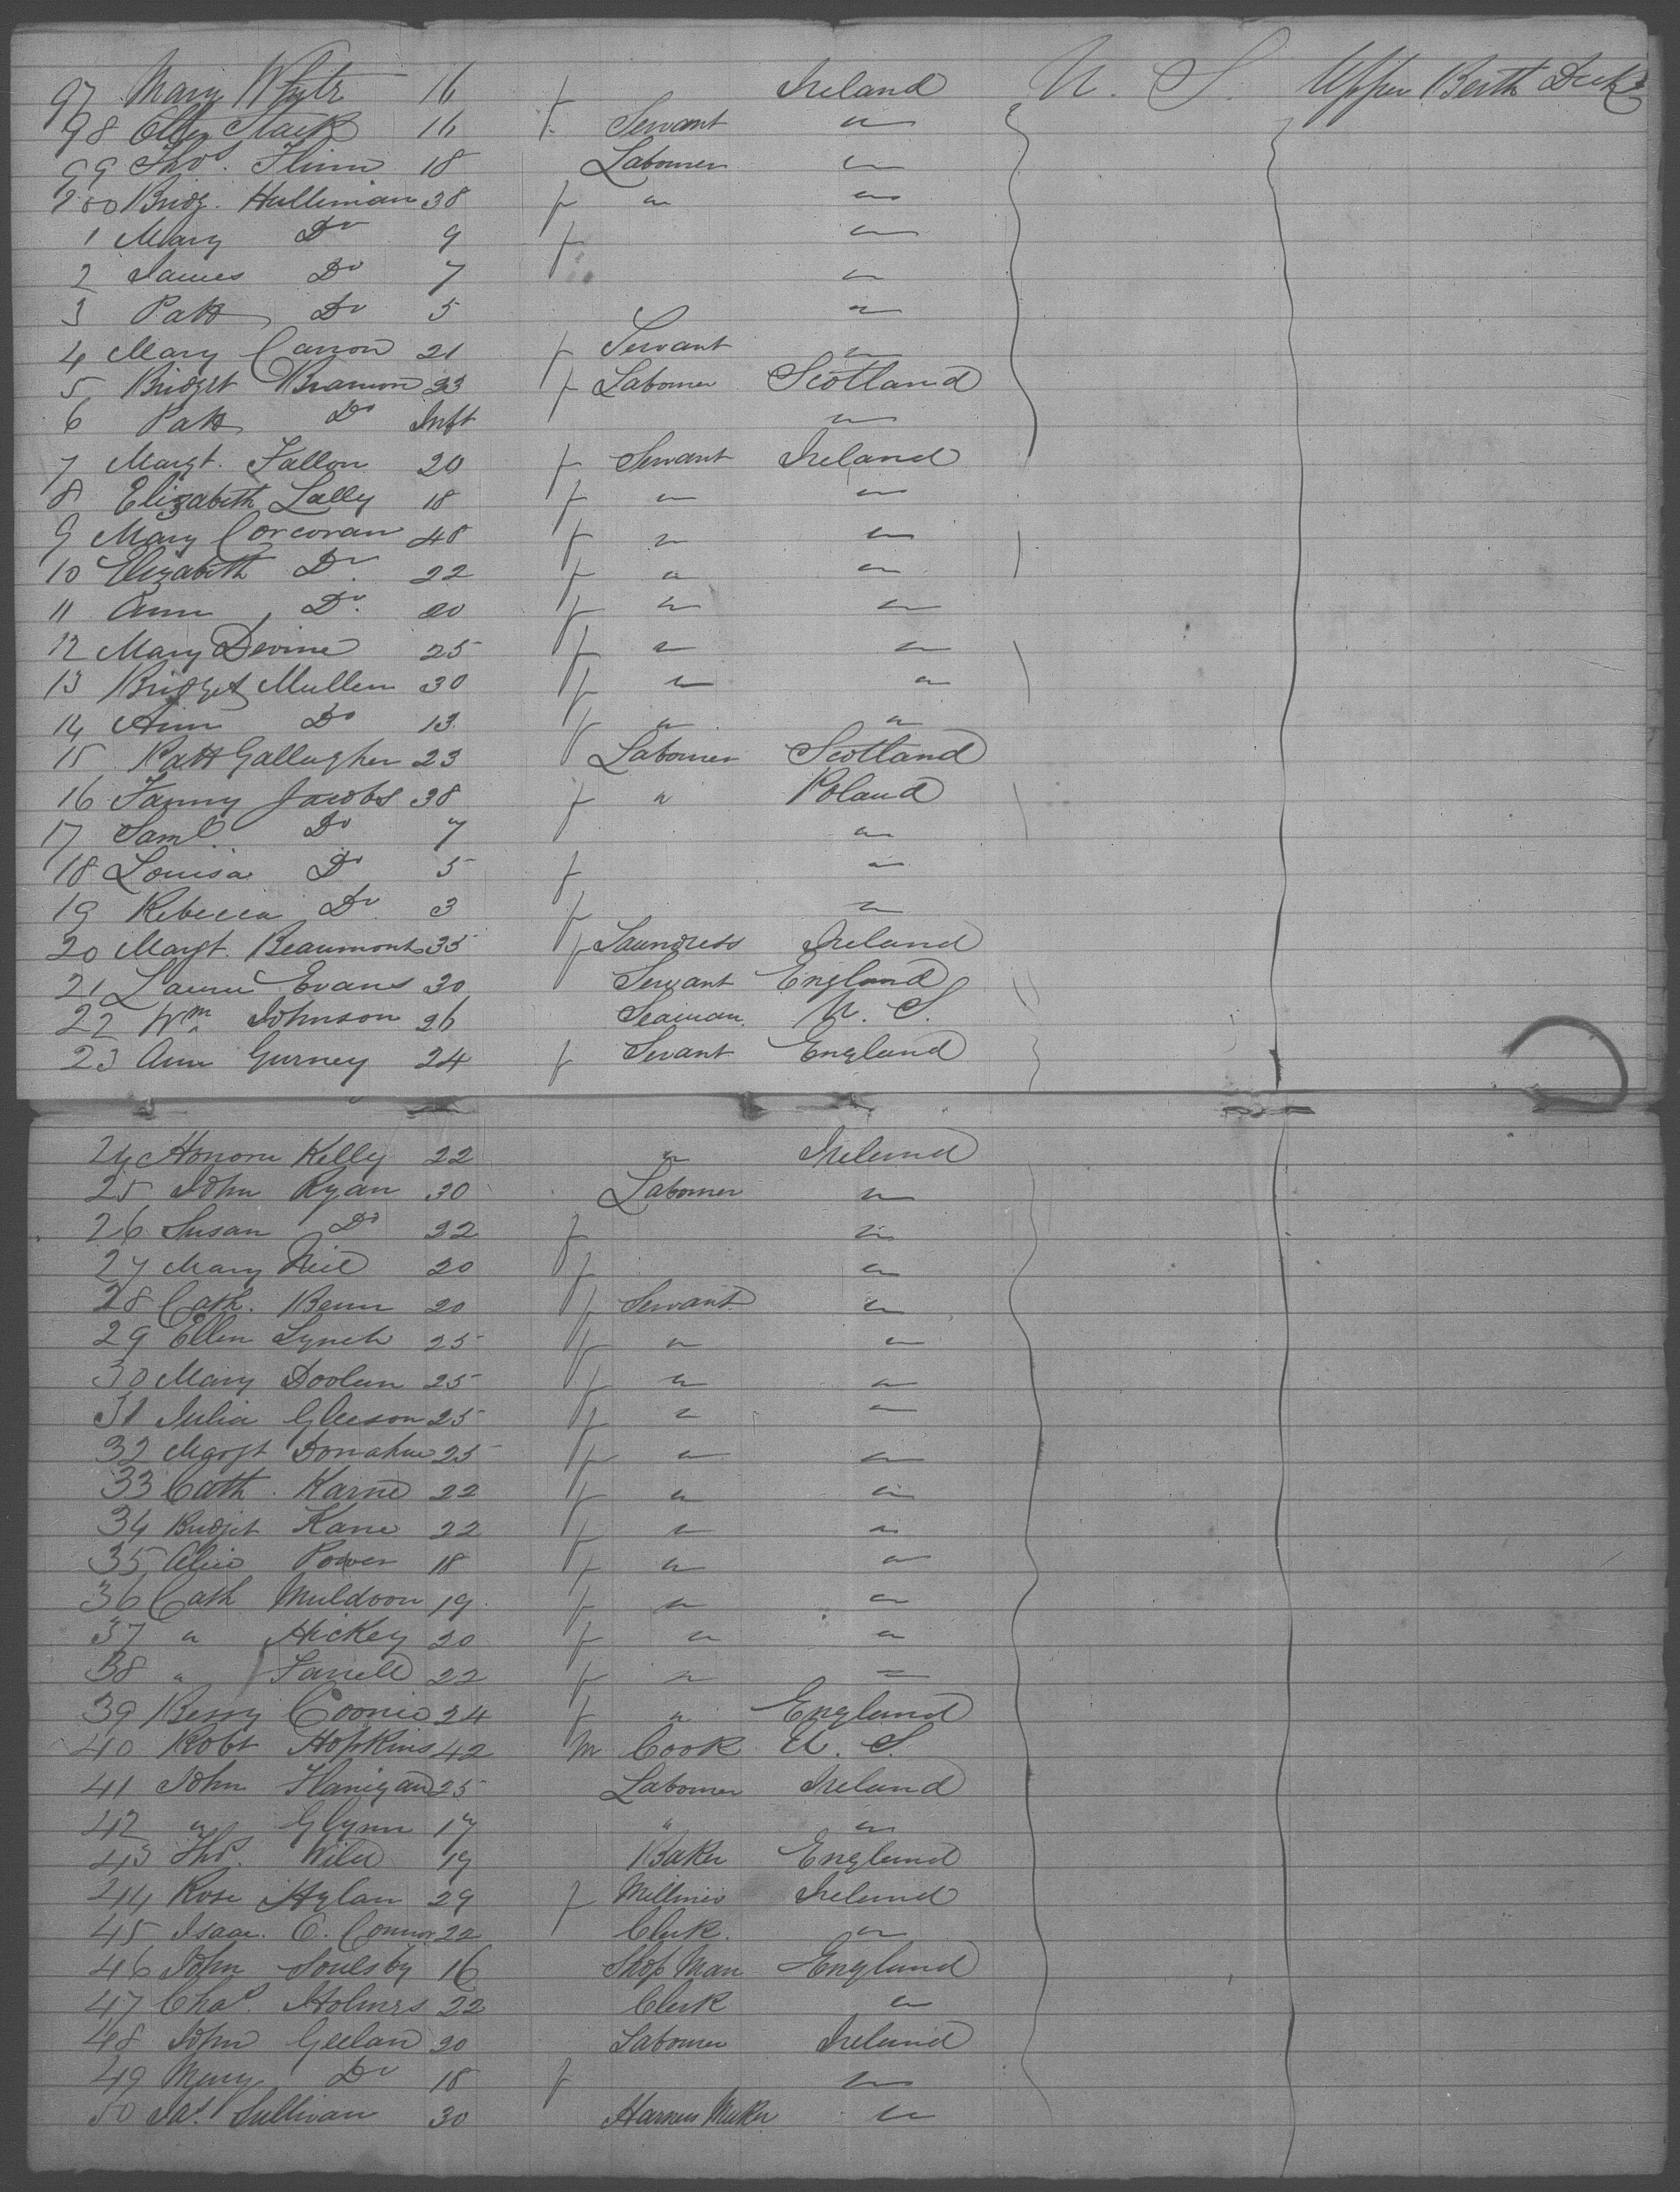 97 Mary Whyte 16 f Ireland U. S. Upper Berth Deck
98 Ellen Stack 16 f Servant "
99 Thos. Flinn 18 Labourer "
200 Bridg. Hallinan 38 f " "
1 Mary Do 9 f "
2 James Do 7 "
3 Patk Do 5 "
4 Mary Canon 21 f Servant "
5 Bridget Brannon 23 f Labourer Scotland
6 Patk Do Inft "
7 Margt. Fallon 20 f Servant Ireland
8 Elizabeth Lally 18 f " "
9 Mary Corcoran 48 f " "
10 Elizabeth Do. 22 f " "
11 Ann Do. 20 f " "
12 Mary Devine 25 f " "
13 Bridget Mullen 30 f " "
14 Ann Do 13 f " "
15 Patt Gallagher 23 Labourer Scotland
16 Fanny Jacobs 38 f " Poland
17 Saml. Do 7 "
18 Louisa Do 5 f "
19 Rebecca Do 3 f "
20 Margt. Beaumont 35 f Laundress Ireland
21 Evans 30 Servant England
22 Wm Johnson 26 Seaman U. S.
23 Ann Gurney 24 f Sevant England
24 Honora Kelly 22 " Ireland
25 John Ryan 30 Labourer "
26 Susan Do 22 f "
27 Mary Neil 20 f "
28 Cath. Benn 20 f Servant "
29 Ellen Lynch 25 f " "
30 Mary Doolan 25 f " "
31 Julia Gleeson 25 f " "
32 Margt Donahue 25 f " "
33 Cath. Karne 22 f " "
34 Bridjet Kane 22 f " "
35 Alice Power 18 f " "
36 Cath Muldoon 19 f " "
37 " Hickey 20 f " "
38 " Farrell 22 f " "
39 Bessy 24 f " England
40 Robt Hopkins 42 m Cook U. S.
41 John Flanigan 25 Labourer Ireland
42 " Glynn 17 " "
43 Thos. Wild 19 Baker England
44 Rose Hylan 29 f Milliner Ireland
45 Isaac O. Connor 22 Clerk. "
46 John Soulsby 16 Shop Man England
47 Chas. Holmes 22 Clerk "
48 John Geelan 20 Labourer Ireland
49 Mary Do 18 f "
50 Jas. Sullivan 30 Harness Maker "